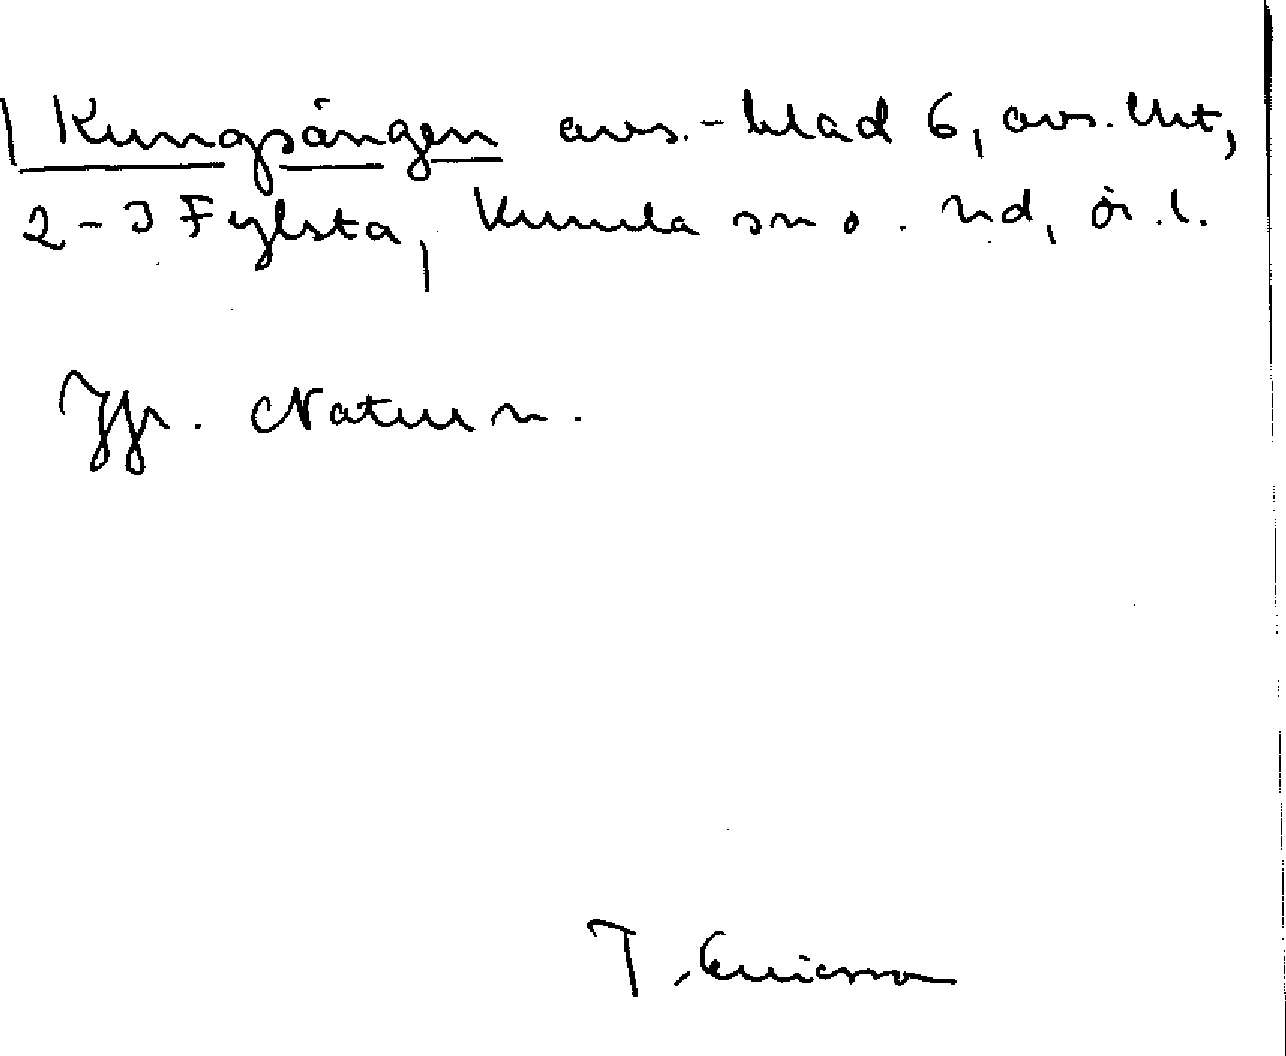 Kungsängen avs.-blad 6, avs. Urt,
2-3 Fylsta, Kumla sn o. hd, ör. l.
Jfr. Naturn.
T. Ericsson